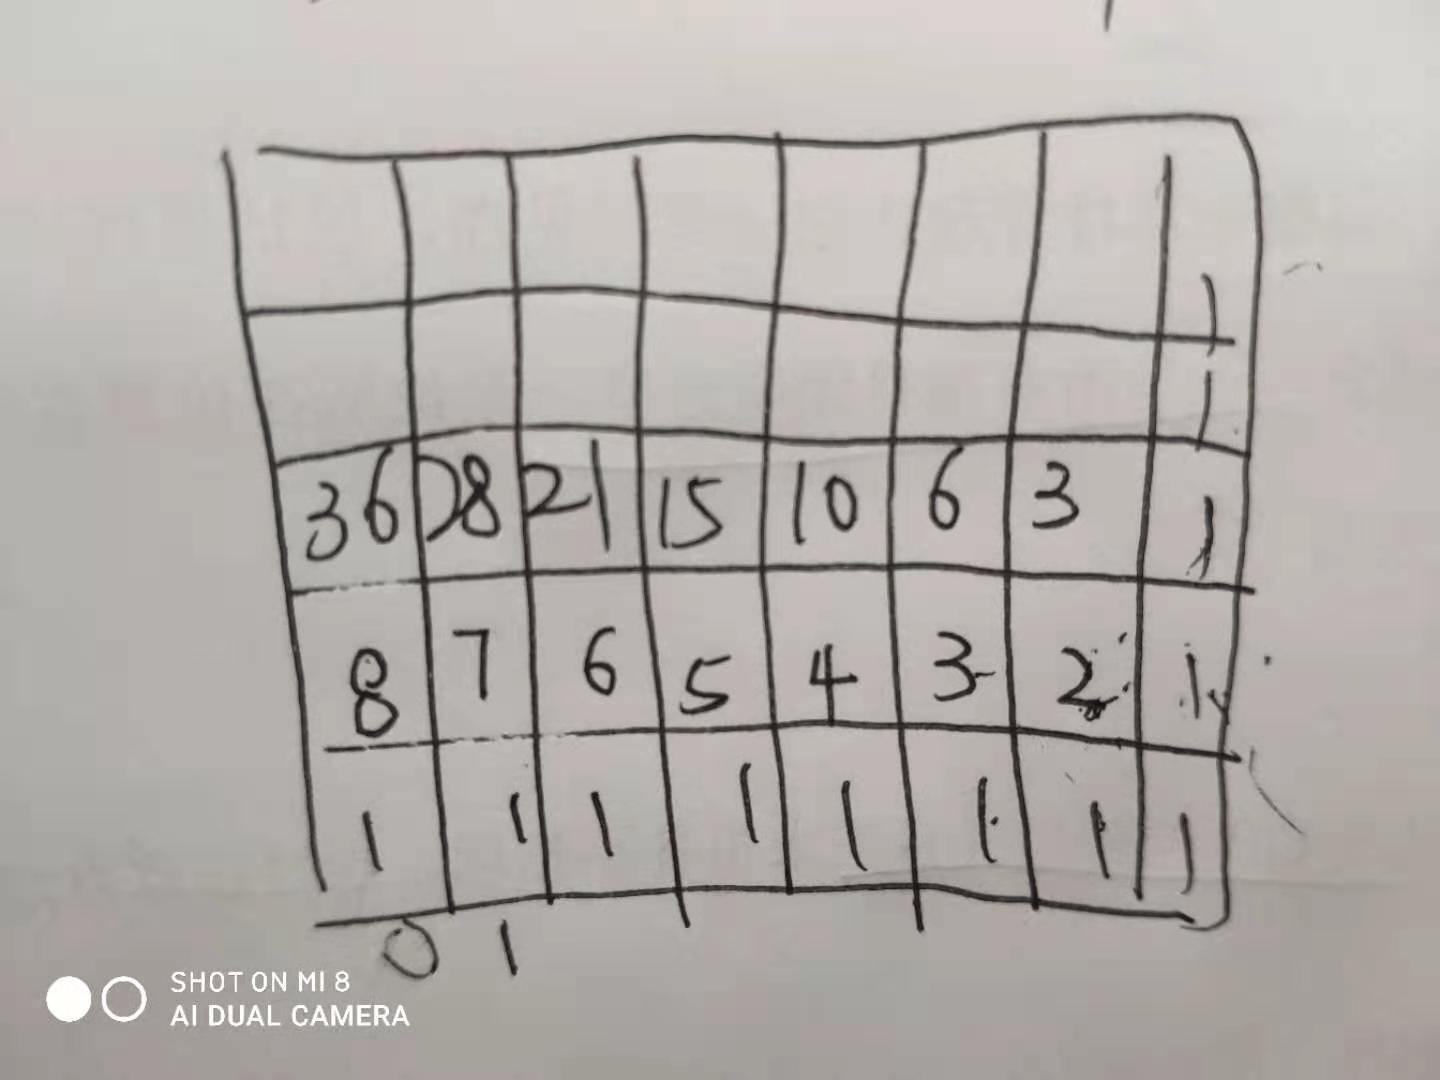 1
1
36 28 21 15 10 6 3 1
8 7 6 5 4 3 2 1
1 1 1 1 1 1 1 1
0 1
SHOT ON MI 8
AI DUAL CAMERA